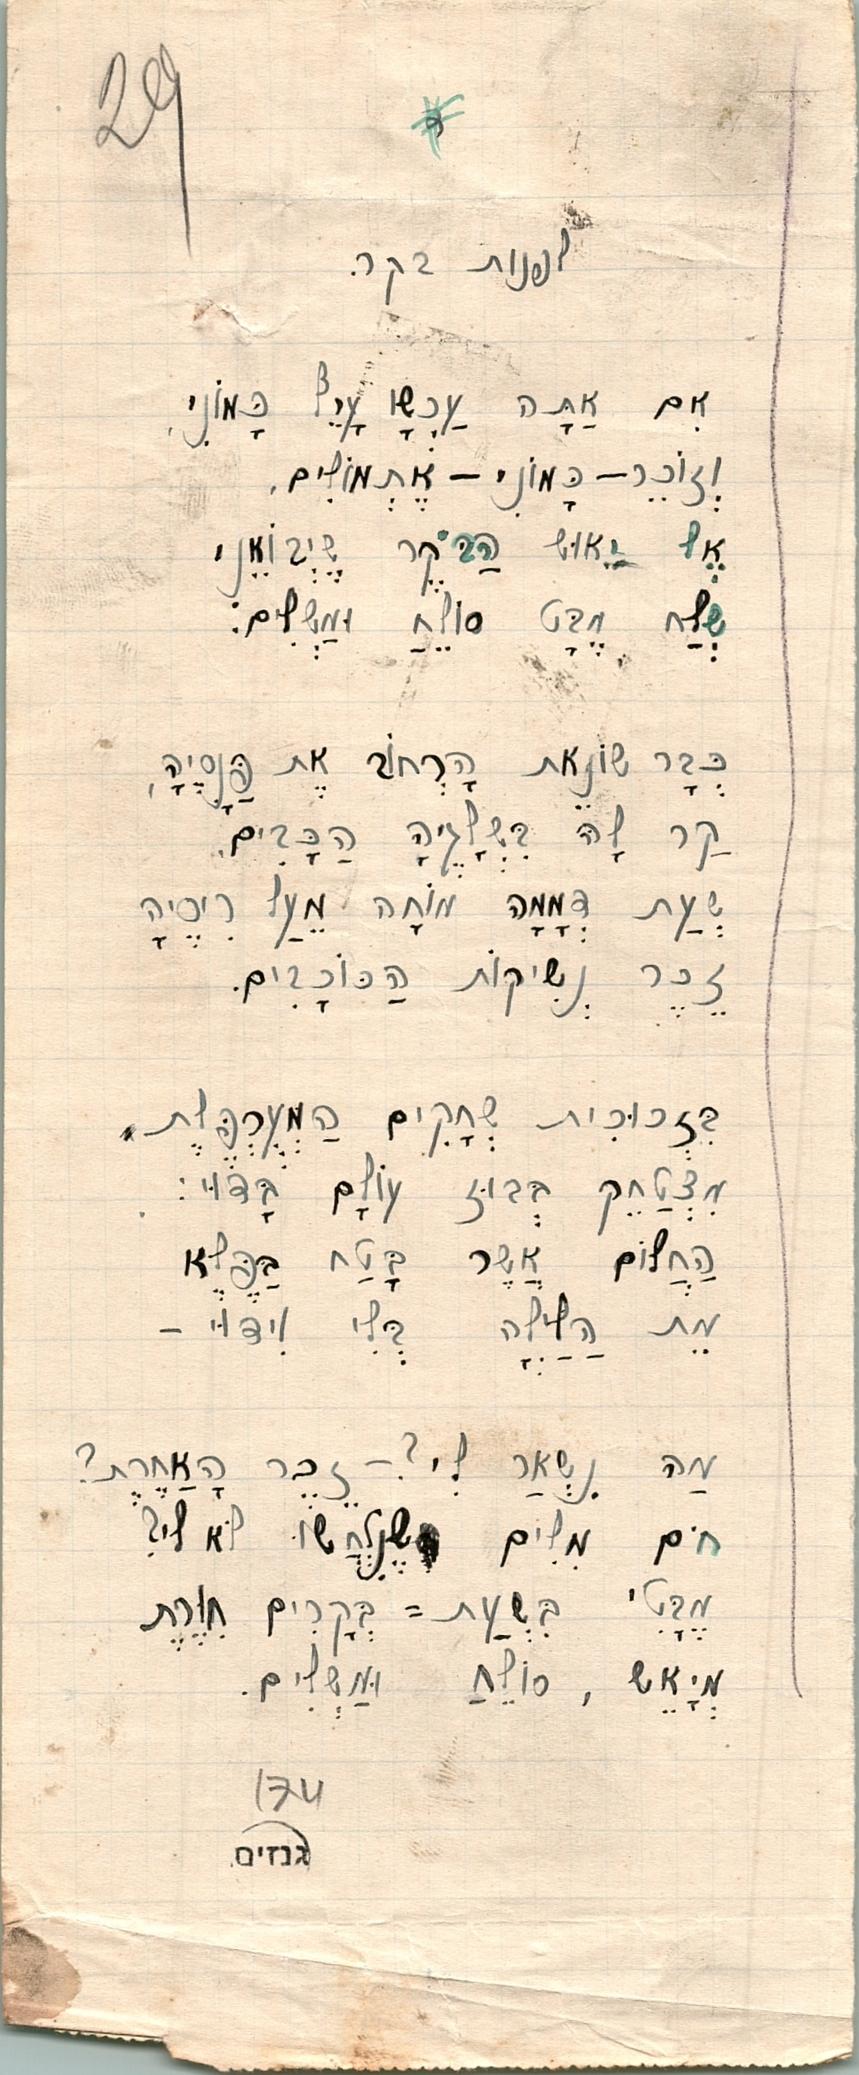 29
לפנות בקר.
אִם אַתָּה עַכְשָׁו עָרֵל כָּמוֹנִי,
וְזוֹכֵר – כָּמוֹנִי – אֶתְמוֹלִים,
אֶל יֵאוּשׁ הַבֹּקֶר שֶׁיְּבוֹאֵנִי
שְׁלַח מֶבָּט סוֹלֵחַ וּמַשְׁלִים:
כְּבָר שׂוֹנֵאת הָרְחוֹב אֶת פַּנָסֶיהָ,
קַר לָהּ בִּשְׁלָגֶיהָ הַכָּבִים,
שְׁעַת דְּמָמָה מוֹחָה מֵעַל רִיסֶיהָ
זֵכֶר נְשִׁיקוֹת הַכּוֹכָבִים.
בִּזְכוּכִית שְׁחָקִים הַמְעֻרְפֶּלֶת
מִצְטַחֵק בְּבוּז עוֹלָם בָּדוּי:
הַחֲלוֹם אֲשֶׁר בָּטַח בַּפֶּלֶא
מֵת הַלַּיְלָה בְּלִי וִידּוּי –
מַה נִּשְׁאַר לִי? – זֵכֶר הָאַחֶרֶת?
חֹם מִלִּים שֶׁנִּלְחֲשׁוּ לֹא לִי?
מֶבָּטִי בִּשְׁעַת = בְּקָרִים חִוֶּרֶת
מְיָאֵשׁ, סוֹלֵחַ וּמַשְׁלִים.
174
גנזים